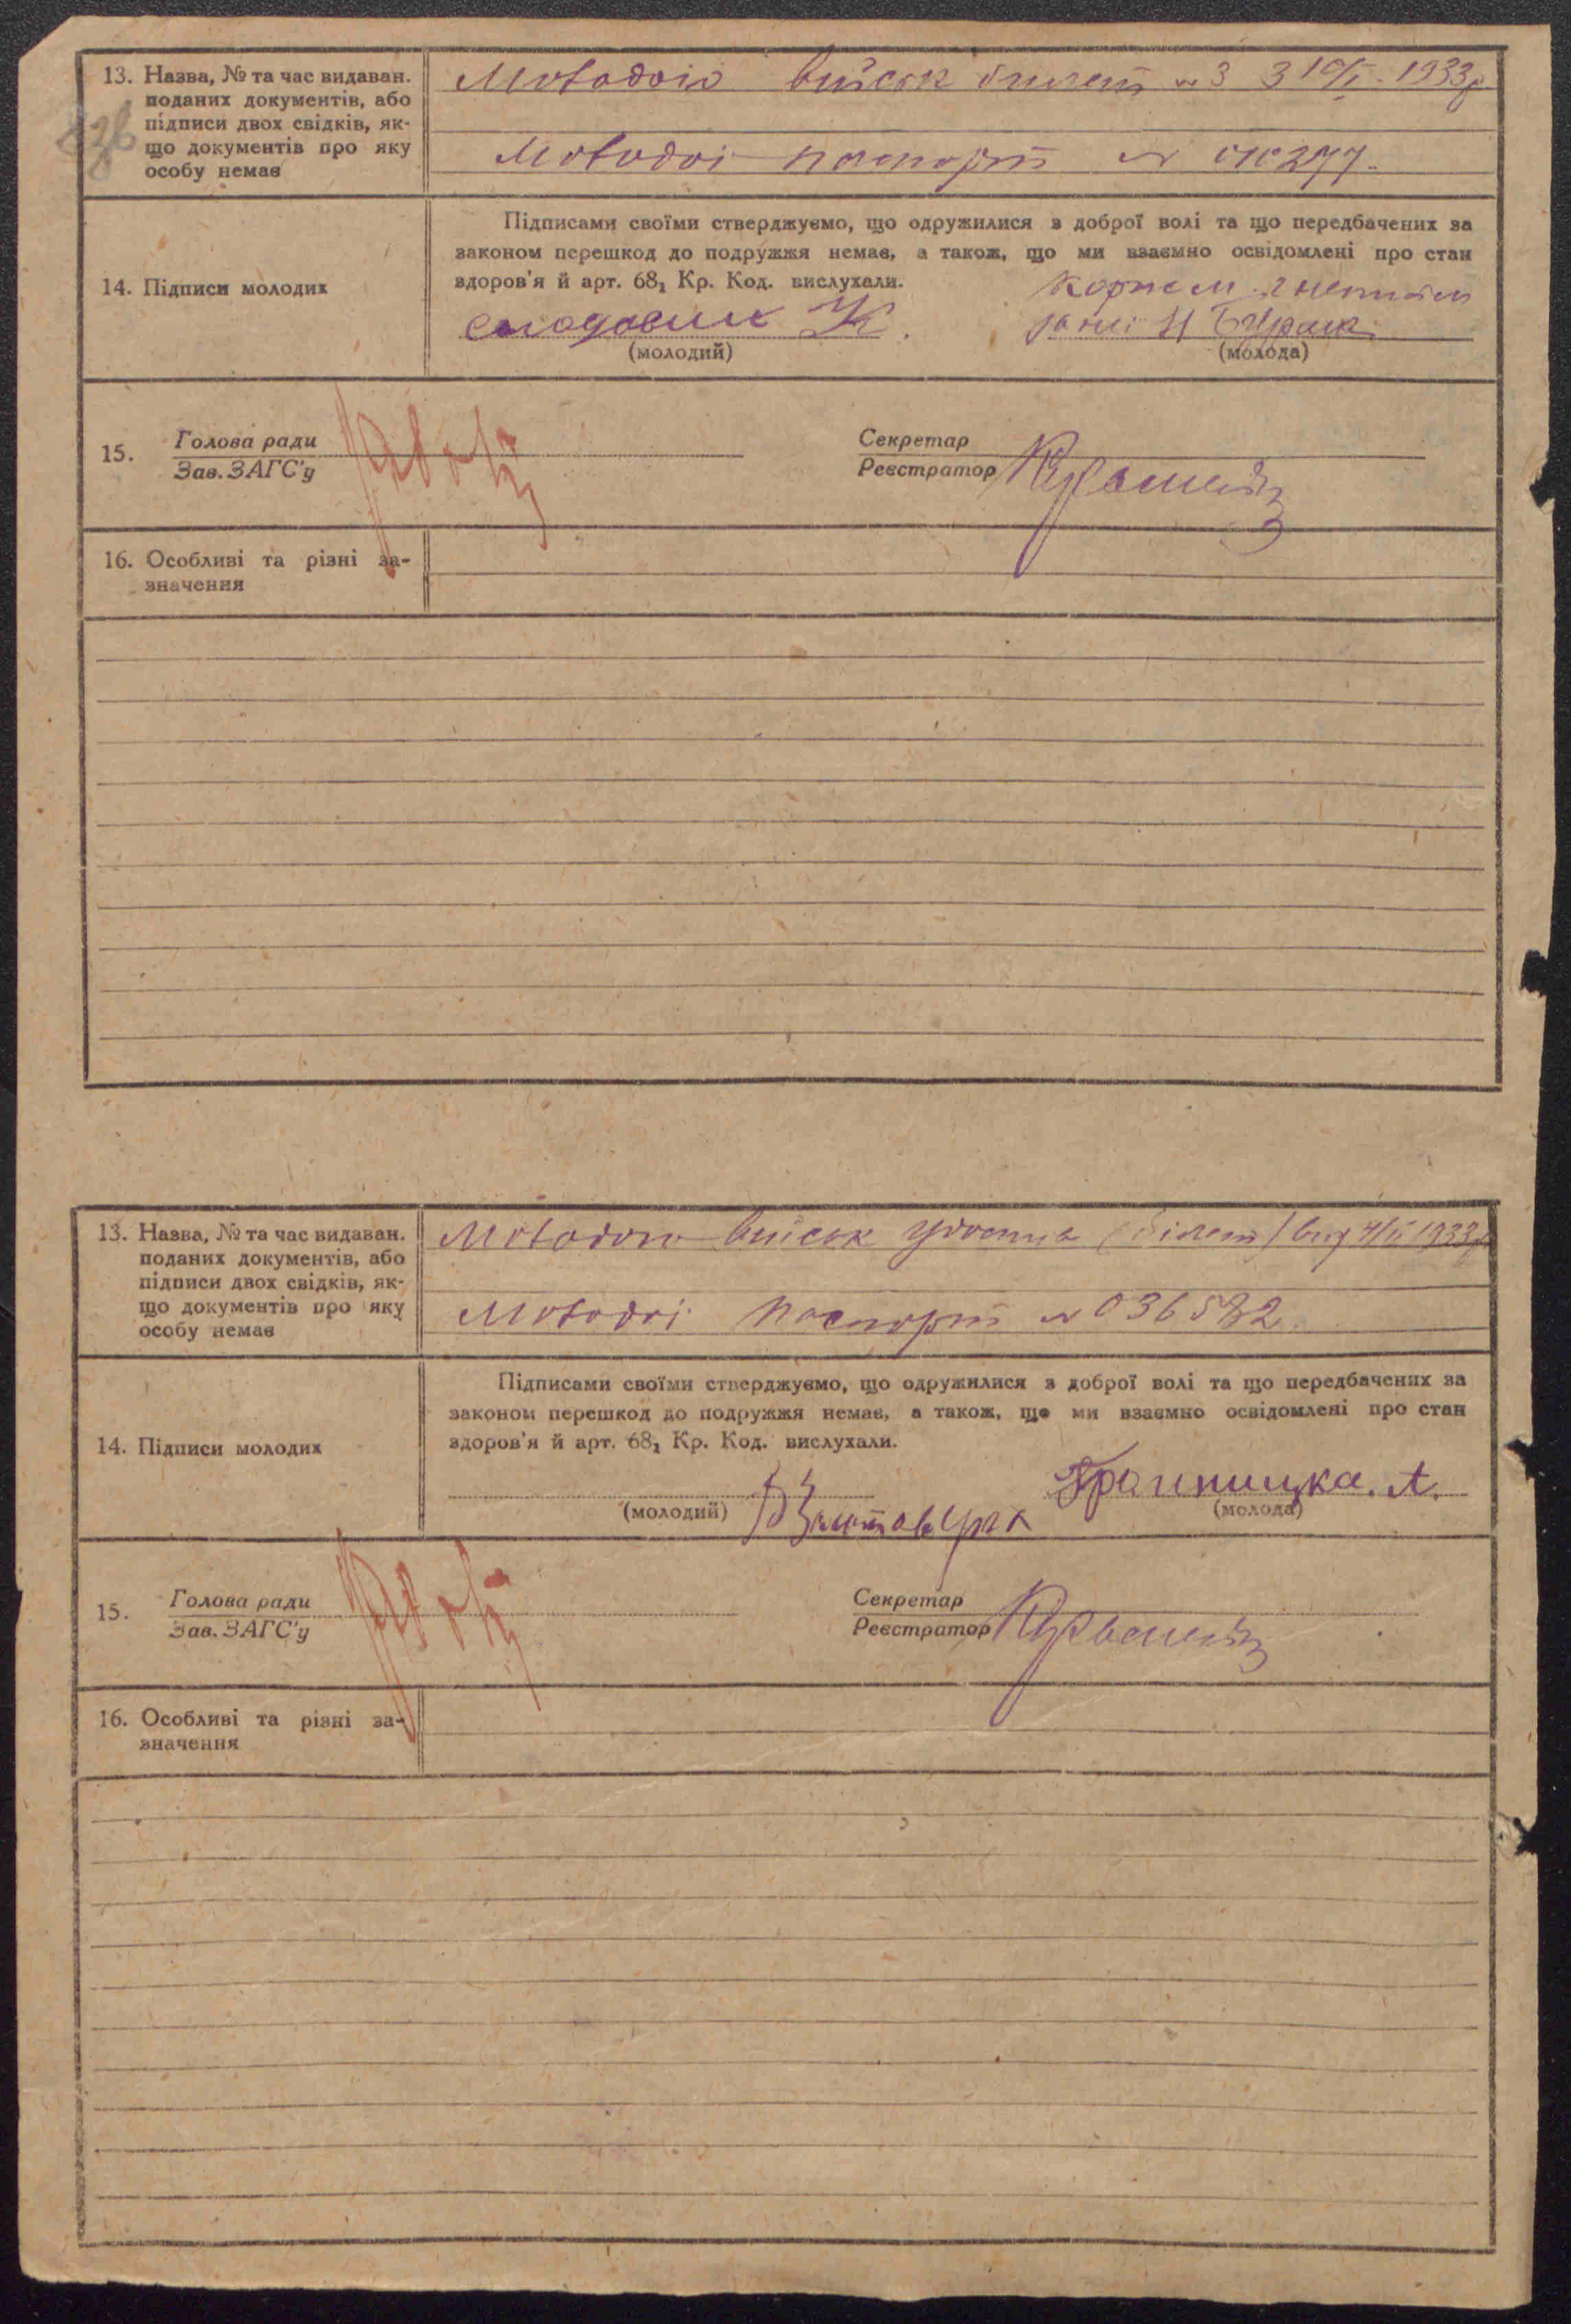 13. Назва, № та час видаван.
поданих документів, або
підписи двох свідків, як-
що документів про яку
особу немає
Молодого військ білет № 3 з 10/I - 1933р.
Молодої паспорт №
14. Підписи молодих
Підписами своїми стверджуємо, що одружилися з доброї волі та що передбачених за
законом перешкод до подружжя немає, а також, що ми взаємно освідомлені про стан
здоров'я й арт. 68₁ Кр. Код. вислухали.
(молодий)
(молода)
15.
Голова ради
Зав. ЗАГС'у
Секретар
Реєстратор
16. Особливі та різні за-
значення
13. Назва, № та час видаван.
поданих документів, або
підписи двох свідків, як-
що документів про яку
особу немає
Молодого військ (білет) від 1933р
Молодої паспорт № 036582.
14. Підписи молодих
Підписами своїми стверджуємо, що одружилися з доброї волі та що передбачених за
законом перешкод до подружжя немає, а також, що ми взаємно освідомлені про стан
здоров'я й арт. 68₁ Кр. Код. вислухали.
(молодий)
(молода)
15.
Голова ради
Зав. ЗАГС'у
Секретар
Реєстратор
16. Особливі та різні за-
значення